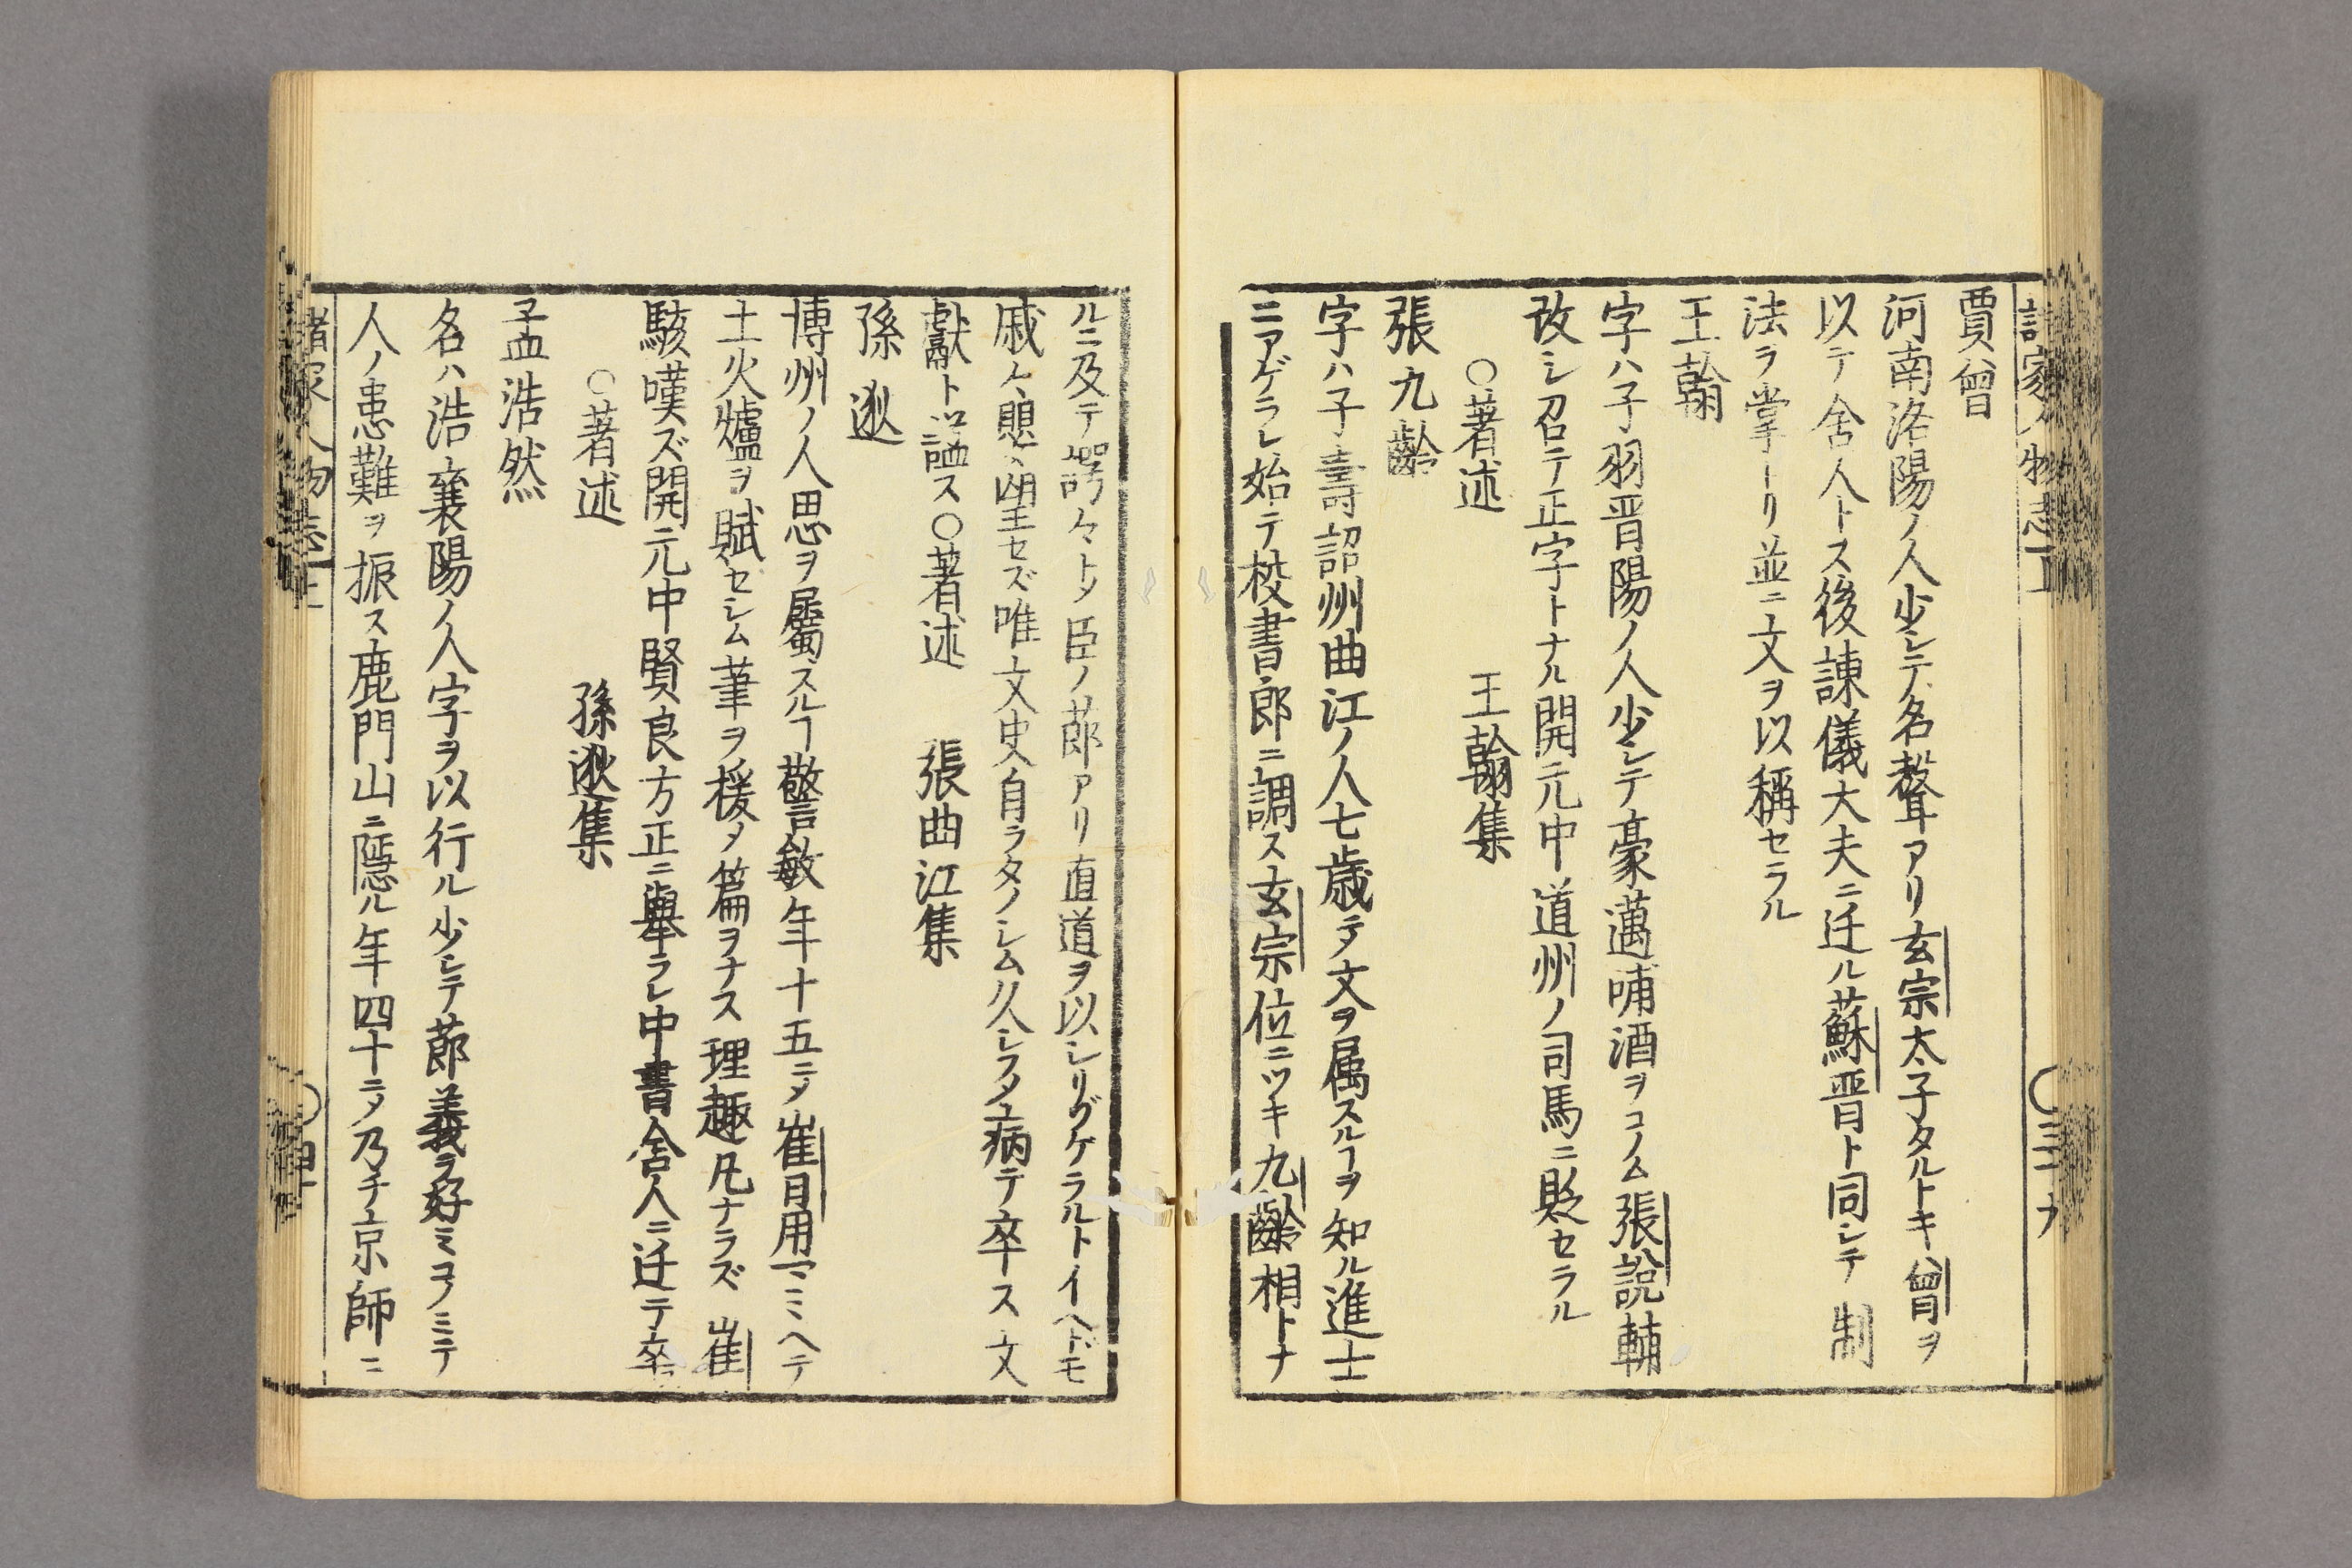 賈曾
河南洛陽ノ人少シテ名聲アリ玄宗太子タルトキ曾ヲ
以テ舍人トス後諫儀大夫ニ迁ル蘇晋ト同シテ制
法ヲ掌トリ並ニ文ヲ以稱セラル
王翰
字ハ子羽晋陽ノ人少シテ豪邁哺酒ヲコノム張說輔
改シ召テ正字トナル開元中道州ノ司馬ニ貶セラル
○著述 王翰集
張九齡
字ハ子壽詔州曲江ノ人七歳ニテ文ヲ属スルヿヲ知ル進士
ニアゲラレ始テ校書郎ニ調ス玄宗位ニツキ九齡相トナ
ルニ及テ諤々トメ臣ノ莭アリ直道ヲ以シリゾケラルトイヘドモ
戚々嬰望セズ唯文史自ラタノシム久シフメ病テ卒ス文
獻ト謚ス○著述 張曲江集
孫逖
博州ノ人思ヲ屬スルヿ警敏年十五ニメ崔日用ニマミヘテ
土火爐ヲ賦セシム筆ヲ援メ篇ヲナス理趣凡ナラズ崔
駭嘆ズ開元中賢良方正ニ舉ラレ中書舍人ニ迁テ卒
○著述 孫逖集
孟浩然
名ハ浩襄陽ノ人字ヲ以行ル少シテ莭義ヲ好ミコノミテ
人ノ患難ヲ振ス鹿門山ニ隱ル年四十ニメ乃チ京師ニ